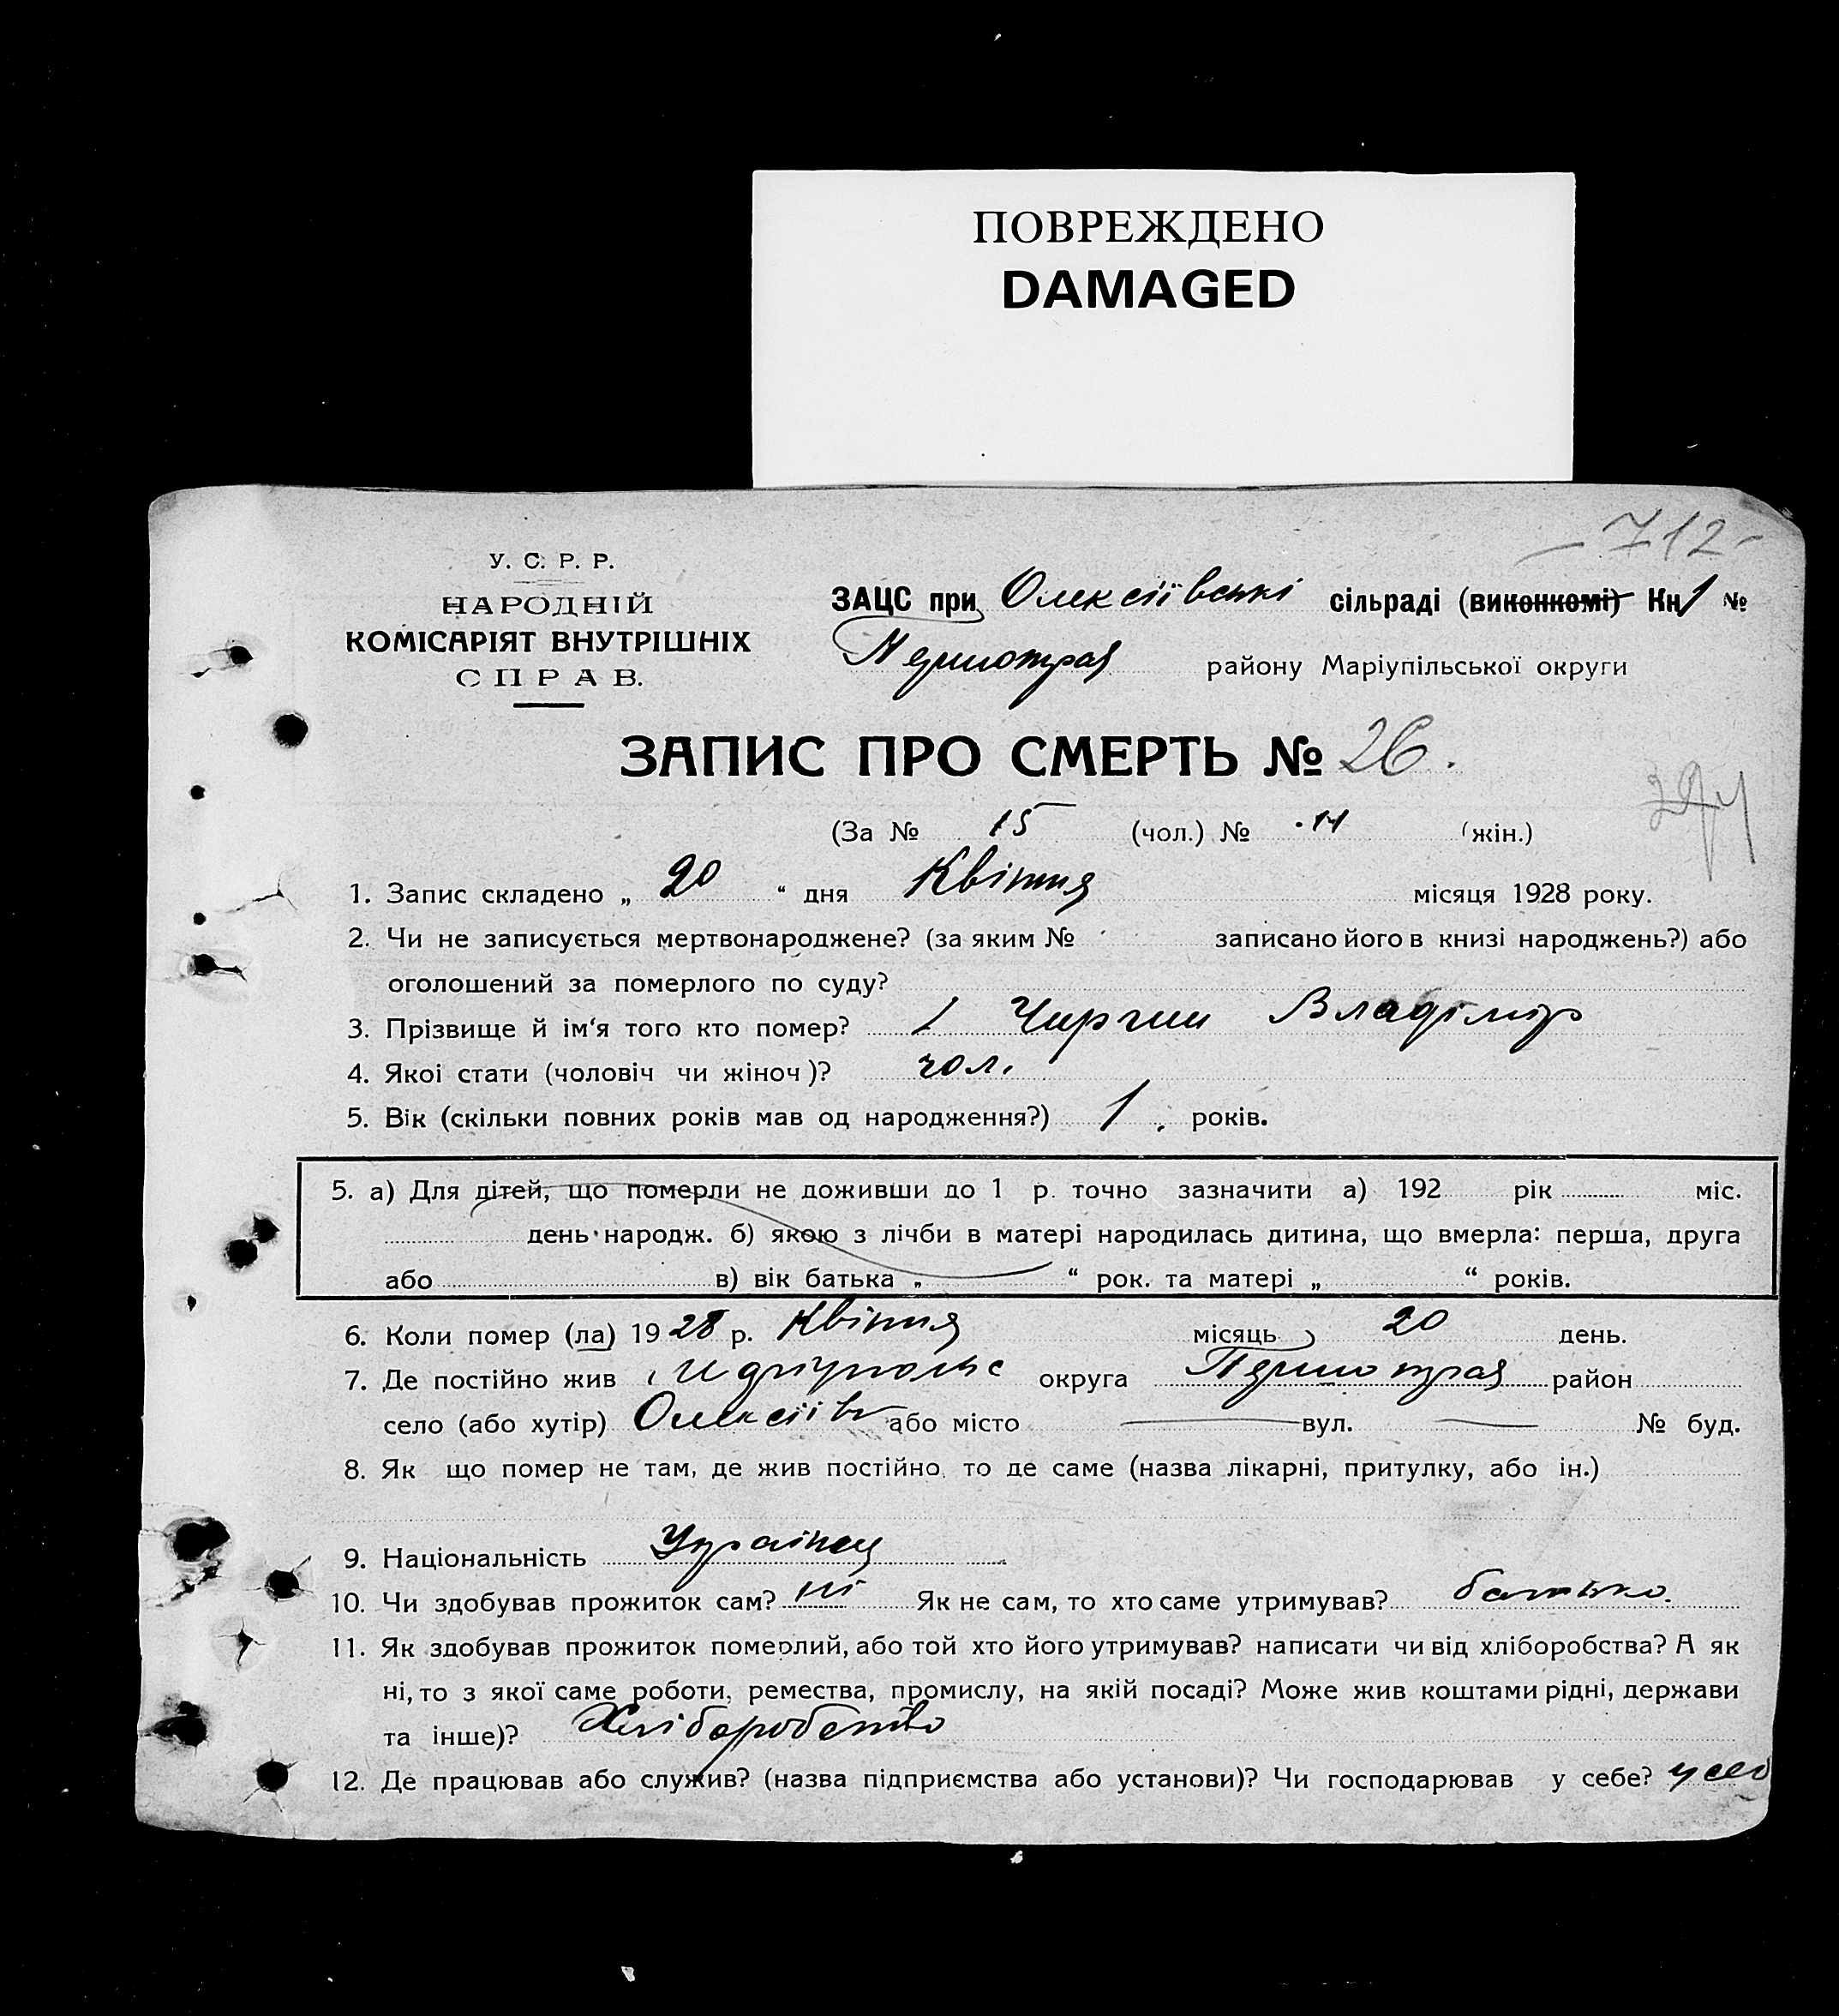 ПОВРЕЖДЕНО
DAMAGED
-712-
У. С. Р. Р.
НАРОДНІЙ
КОМІСАРІЯТ ВНУТРІШНІХ
СПРАВ.
ЗАЦС при Олексіївські сільраді (виконкомі) Кн 1 №
Першотрав району Маріупільської округи
ЗАПИС ПРО СМЕРТЬ № 26.
(За № 15 (чол.) № 11 (жін.)
1. Запис складено „ 20 “ дня Квітня місяця 1928 року.
2. Чи не записується мертвонароджене? (за яким № записано його в книзі народжень?) або
оголошений за померлого по суду?
3. Прізвище й ім‘я того кто помер? Владімір
4. Якоі стати (чоловіч чи жіноч)? чол.
5. Вік (скільки повних років мав од народження?) 1 років.
5. а) Для дітей, що померли не доживши до 1 р. точно зазначити а) 192 рік міс.
день народж. б) якою з лічби в матері народилась дитина, що вмерла: перша, друга
або в) вік батька „ “ рок. та матері „ “ років.
6. Коли помер (ла) 1928 р. Квітня місяць 20 день.
7. Де постійно жив Маріупольс округа Першотрав район
село (або хутір) Олексіїв або місто вул. № буд.
8. Як що помер не там, де жив постійно, то де саме (назва лікарні, притулку, або ін.)
9. Національність Українец
10. Чи здобував прожиток сам? ні Як не сам, то хто саме утримував? батько.
11. Як здобував прожиток померлий, або той хто його утримував? написати чи від хліборобства? А як
ні, то з якої саме роботи, ремества, промислу, на якій посаді? Може жив коштами рідні, держави
та інше)? Хліборобство
12. Де працював або служив? (назва підприємства або установи)? Чи господарював у себе? у себ